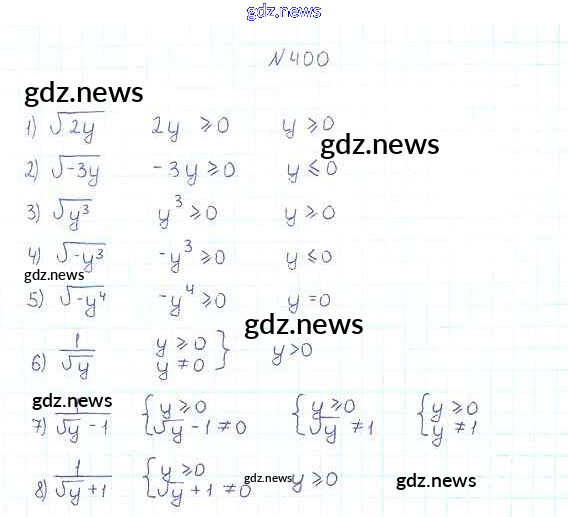 gdz.news
N 400
gdz.news
1) √2y 2y ⩾ 0 y ⩾ 0
gdz.news
2) √-3y -3y ⩾ 0 y ⩽ 0
3) √y³ y³ ⩾ 0 y ⩾ 0
4) √-y³ -y³ ⩾ 0 y ⩽ 0
gdz.news
5) √-y⁴ -y⁴ ⩾ 0 y = 0
gdz.news
6) 1/√y y ⩾ 0 y ≠ 0 } y > 0
gdz.news
7) 1/√y - 1 { y ⩾ 0 √y - 1 ≠ 0 { y ⩾ 0 √y ≠ 1 { y ⩾ 0 y ≠ 1
8) 1/√y + 1 { y ⩾ 0 √y + 1 ≠ 0 y ⩾ 0
gdz.news gdz.news